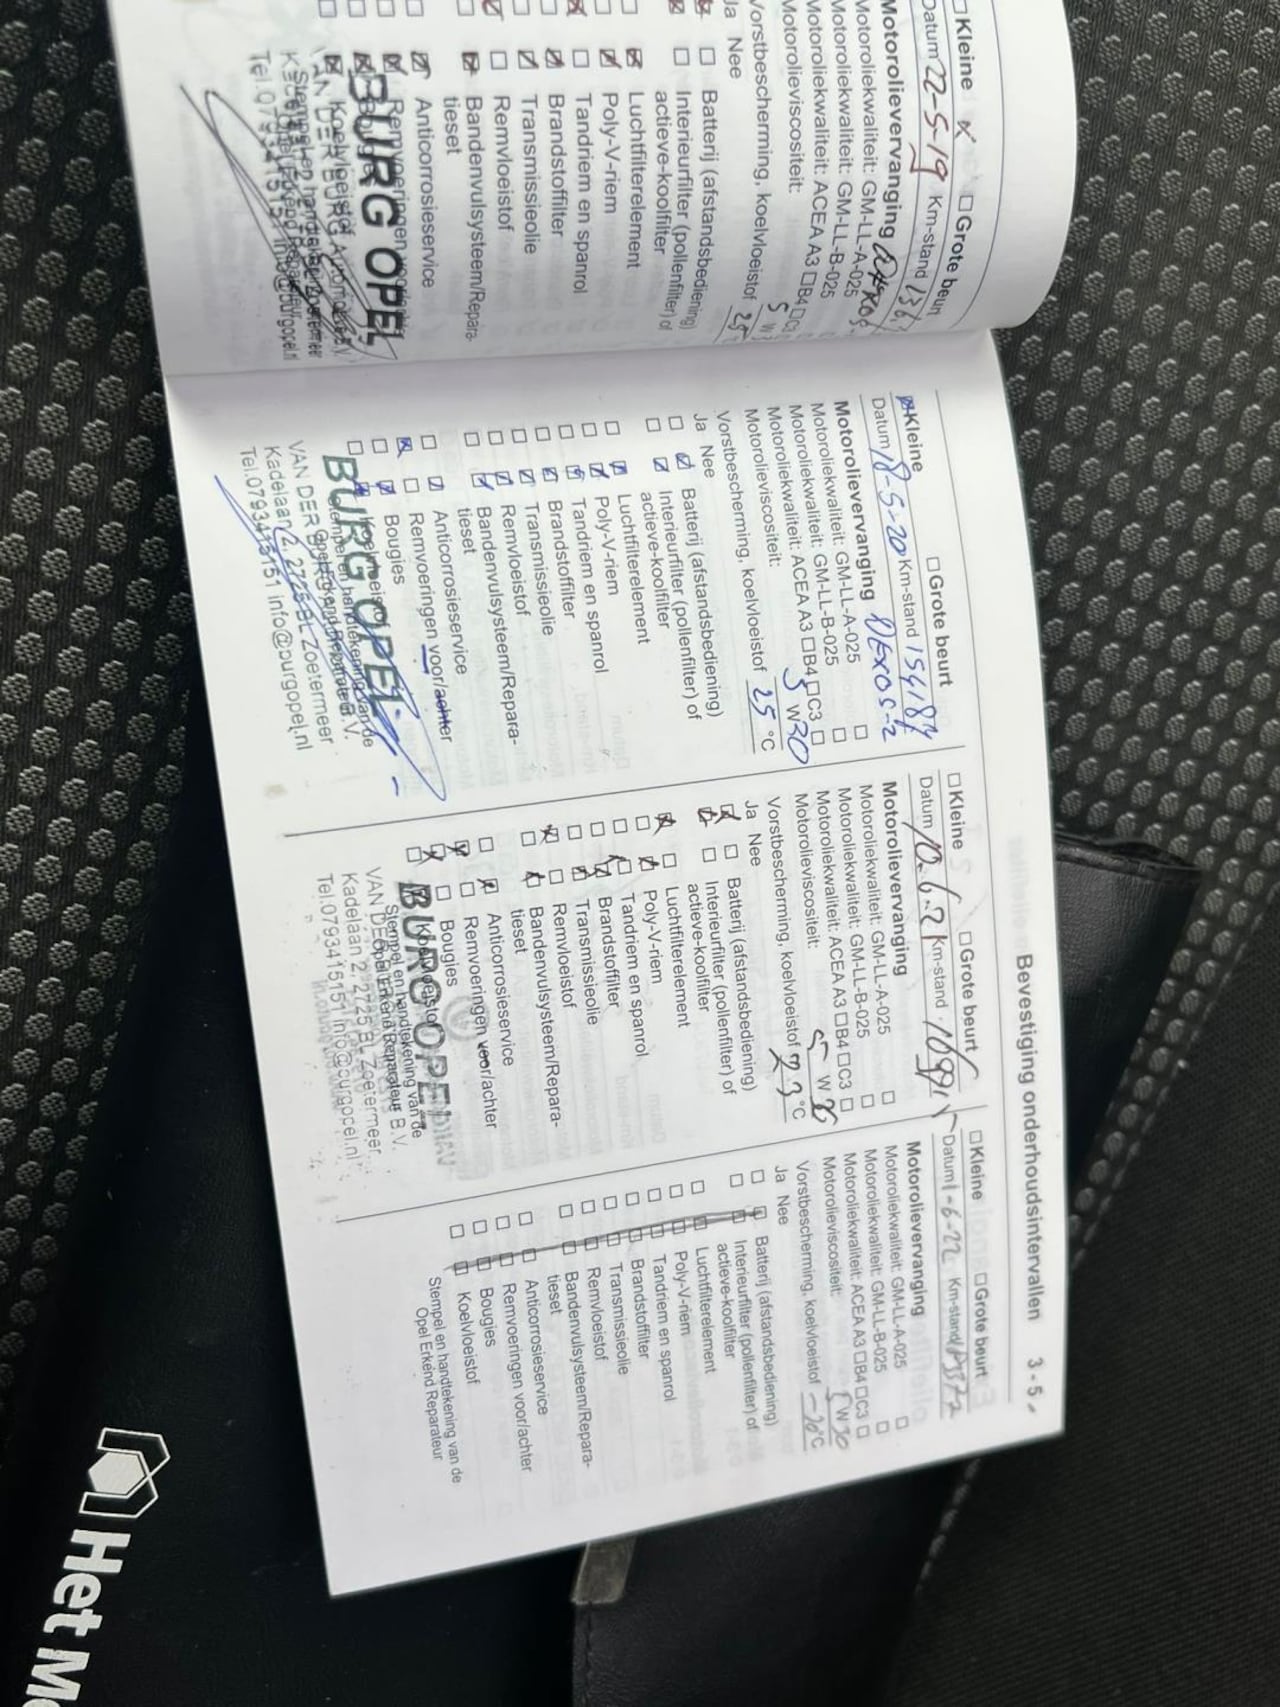 Kleine Grote beurt
Datum 22-5-19 Km-stand
Motorolievervanging
Motoroliekwaliteit: GM-LL-A-025
Motoroliekwaliteit: GM-LL-B-025
Motoroliekwaliteit: ACEA A3 B4 C3
Motorolieviscositeit: 5 W
Vorstbescherming, koelvloeistof 25
Ja Nee
Batterij (afstandsbediening)
Interieurfilter (pollenfilter) of
actieve-koolfilter
Luchtfilterelement
Poly-V-riem
Tandriem en spanrol
Brandstoffilter
Transmissieolie
Remvloeistof
Bandenvulsysteem/Repara-
tieset
Anticorrosieservice
Remvoeringen
Koelvloeistof
BURG OPEL
Bevestiging onderhoudsintervallen 3-5
Kleine Grote beurt
Datum 18-5-20 Km-stand
Motorolievervanging DEXOS-2
Motoroliekwaliteit: GM-LL-A-025
Motoroliekwaliteit: GM-LL-B-025
Motoroliekwaliteit: ACEA A3 B4 C3
Motorolieviscositeit: 5 W30
Vorstbescherming, koelvloeistof 25 °C
Ja Nee
Batterij (afstandsbediening)
Interieurfilter (pollenfilter) of
actieve-koolfilter
Luchtfilterelement
Poly-V-riem
Tandriem en spanrol
Brandstoffilter
Transmissieolie
Remvloeistof
Bandenvulsysteem/Repara-
tieset
Anticorrosieservice
Remvoeringen voor/achter
Bougies
BURG OPEL
VAN DER BURG
Kadelaan 2, 2725 BL Zoetermeer
Tel.0793415151 info@burgopel.nl
Kleine Grote beurt
Datum 10-6-21 Km-stand
Motorolievervanging
Motoroliekwaliteit: GM-LL-A-025
Motoroliekwaliteit: GM-LL-B-025
Motoroliekwaliteit: ACEA A3 B4 C3
Motorolieviscositeit: 5 W 30
Vorstbescherming, koelvloeistof 23 °C
Ja Nee
Batterij (afstandsbediening)
Interieurfilter (pollenfilter) of
actieve-koolfilter
Luchtfilterelement
Poly-V-riem
Tandriem en spanrol
Brandstoffilter
Transmissieolie
Remvloeistof
Bandenvulsysteem/Repara-
tieset
Anticorrosieservice
Remvoeringen voor/achter
Bougies
Koelvloeistof
BURG OPEL
Stempel en handtekening van de
Opel Erkend Reparateur
Kadelaan 2, 2725 BL Zoetermeer
Tel.0793415151 info@burgopel.nl
Kleine Grote beurt
Datum 1-6-22 Km-stand
Motorolievervanging
Motoroliekwaliteit: GM-LL-A-025
Motoroliekwaliteit: GM-LL-B-025
Motoroliekwaliteit: ACEA A3 B4 C3
Motorolieviscositeit: 5 W 30
Vorstbescherming, koelvloeistof °C
Ja Nee
Batterij (afstandsbediening)
Interieurfilter (pollenfilter) of
actieve-koolfilter
Luchtfilterelement
Poly-V-riem
Tandriem en spanrol
Brandstoffilter
Transmissieolie
Remvloeistof
Bandenvulsysteem/Repara-
tieset
Anticorrosieservice
Remvoeringen voor/achter
Bougies
Koelvloeistof
Stempel en handtekening van de
Opel Erkend Reparateur
Het M